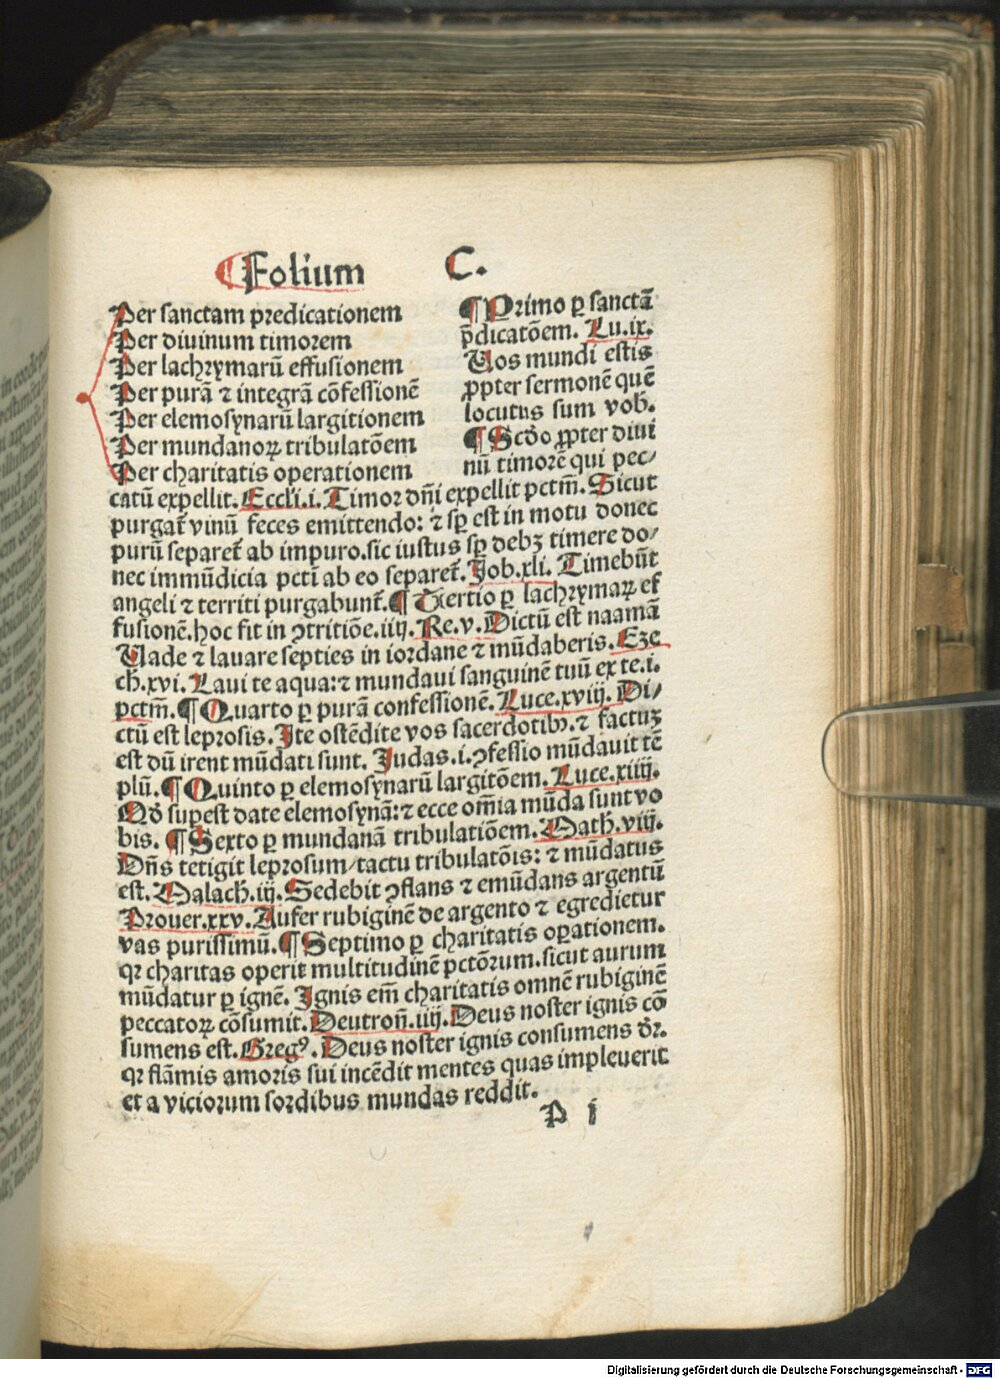 ¶Folium C.
Per sanctam predicationem
Per diuinum timorem
Per lachrymarū effusionem
Per purā ⁊ integrā cōfessionē
Per elemosynarū largitionem
Per mundanoꝝ tribulatōem
Per charitatis operationem
¶Primo ꝑ sanctā
p̄dicatōem. Lu.ix.
Uos mundi estis
ꝓpter sermonē quē
locutus sum vob.
¶Scd̄o ꝓpter diui
nū timorē qui pec⸗
catū expellit. Eccl̄i.i. Timor dn̄i expellit pctm̄. Sicut
purgat̄ vinū feces emittendo: ⁊ sꝑ est in motu donec
purū separet̄ ab impuro.sic iustus sꝑ debꝫ timere do⸗
nec immūdicia pcti ab eo separet̄. Job.xli. Timebūt
angeli ⁊ territi purgabunt̄.¶Tertio ꝑ lachrymaꝝ ef
fusionē.hoc fit in ꝯtritiōe.iiij.Re.v.Dictū est naamā
Uade ⁊ lauare septies in iordane ⁊ mūdaberis. Eze
ch̄.xvi. Laui te aqua:⁊ mundaui sanguinē tuū ex te.i.
pctm̄.¶Quarto ꝑ purā confessionē. Luce.xviij. Di⸗
ctū est leprosis. Ite ostēdite vos sacerdotibꝰ.⁊ factuꝫ
est dū irent mūdati sunt. Judas.i.ꝯfessio mūdauit tē
plū.¶Quinto ꝑ elemosynarū largitōem. Luce.xiiij.
Qd̄ suꝑest date elemosynā:⁊ ecce om̄ia mūda sunt vo
bis. ¶Sexto ꝑ mundanā tribulatiōem. Math.viij.
Dn̄s tetigit leprosum/tactu tribulatōis: ⁊ mūdatus
est. Malach.iij. Sedebit ꝯflans ⁊ emūdans argentū
Prouer.xxv. Aufer rubiginē de argento ⁊ egredietur
vas purissimū.¶Septimo ꝑ charitatis oꝑationem.
qꝛ charitas operit multitudinē pctōrum.sicut aurum
mūdatur ꝑ ignē. Ignis em̄ charitatis omnē rubiginē
peccatoꝝ cōsumit. Deutron̄.iiij. Deus noster ignis cō
sumens est. Gregꝰ. Deus noster ignis consumens dr̄.
qꝛ flāmis amoris sui incēdit mentes quas impleuerit
et a viciorum sordibus mundas reddit.
P i
Digitalisierung gefördert durch die Deutsche Forschungsgemeinschaft - DFG